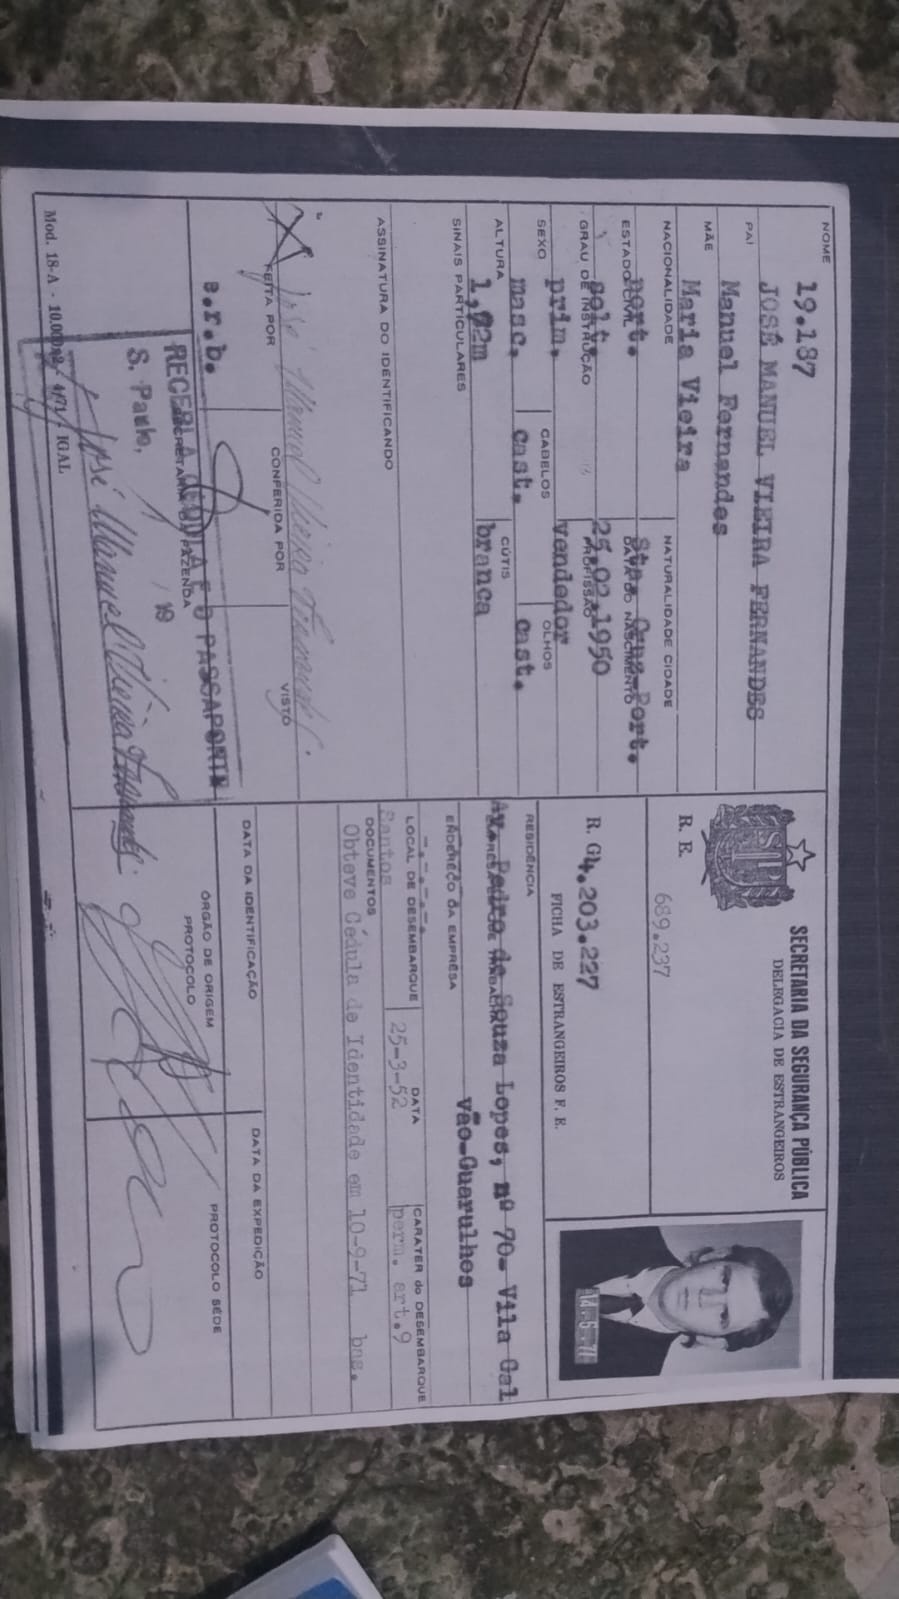 SECRETARIA DA SEGURANÇA PÚBLICA
DELEGACIA DE ESTRANGEIROS
19.187
NOME
JOSÉ MANUEL VIEIRA FERNANDES
PAI
Manuel Fernandes
MÃE
Maria Vieira
NACIONALIDADE
port.
NATURALIDADE CIDADE
Sta. Cruz-Port.
ESTADO CIVIL
solt.
DATA DO NASCIMENTO
25.02.1950
GRAU DE INSTRUÇÃO
prim.
PROFISSÃO
vendedor
SEXO
masc.
CABELOS
cast.
OLHOS
cast.
ALTURA
1,72m
CÚTIS
branca
SINAIS PARTICULARES
ASSINATURA DO IDENTIFICANDO
José Manuel Vieira Fernandes
FEITA POR
CONFERIDA POR
VISTO
a.r.b.
RECEBI A CEDULA E O PASSAPORTE
SECRETARIA DA FAZENDA
S. Paulo, 19
José Manuel Vieira Fernandes
Mod. 18-A - 10.000 - 4/71 - IGAL
R. E. 689.237
R. G. 4.203.227
FICHA DE ESTRANGEIROS F. E.
14-6-71
RESIDÊNCIA
Av. Pedro de Souza Lopes, nº 70- Vila Gal
vão-Guarulhos
ENDERÊÇO DA EMPRÊSA
-.-.-.-.
LOCAL DE DESEMBARQUE
Santos
DATA
25-3-52
CARATER do DESEMBARQUE
perm. art.9
DOCUMENTOS
Obteve Cédula de Identidade em 10-9-71 bns.
DATA DA IDENTIFICAÇÃO
DATA DA EXPEDIÇÃO
ÓRGÃO DE ORIGEM
PROTOCOLO
PROTOCOLO SÉDE